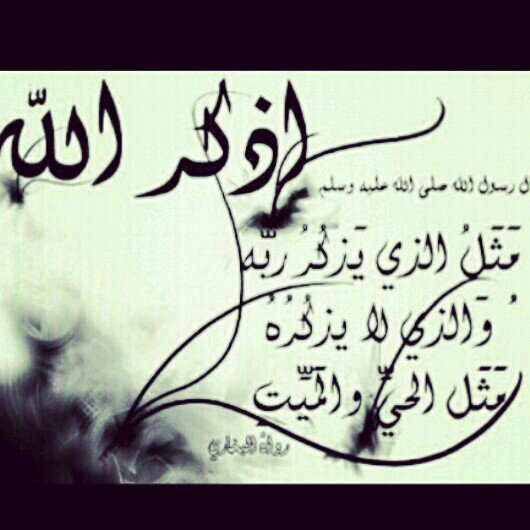 اذكر الله
ل رسول الله صلى الله عليه وسلم
مَثَلُ الذي يَذكُرُ ربَّه
وَالذي لا يذكُرُهُ
مَثَل الحيِّ والمَيَّتِ
رواه البخاري